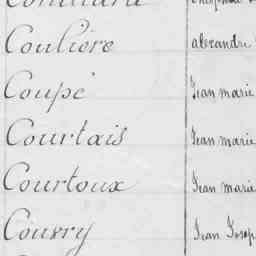 Coulière alexandre
Coupé Jean marie
Courtais Jean marie
Courtoux Jean marie
Couvry Jean Josep